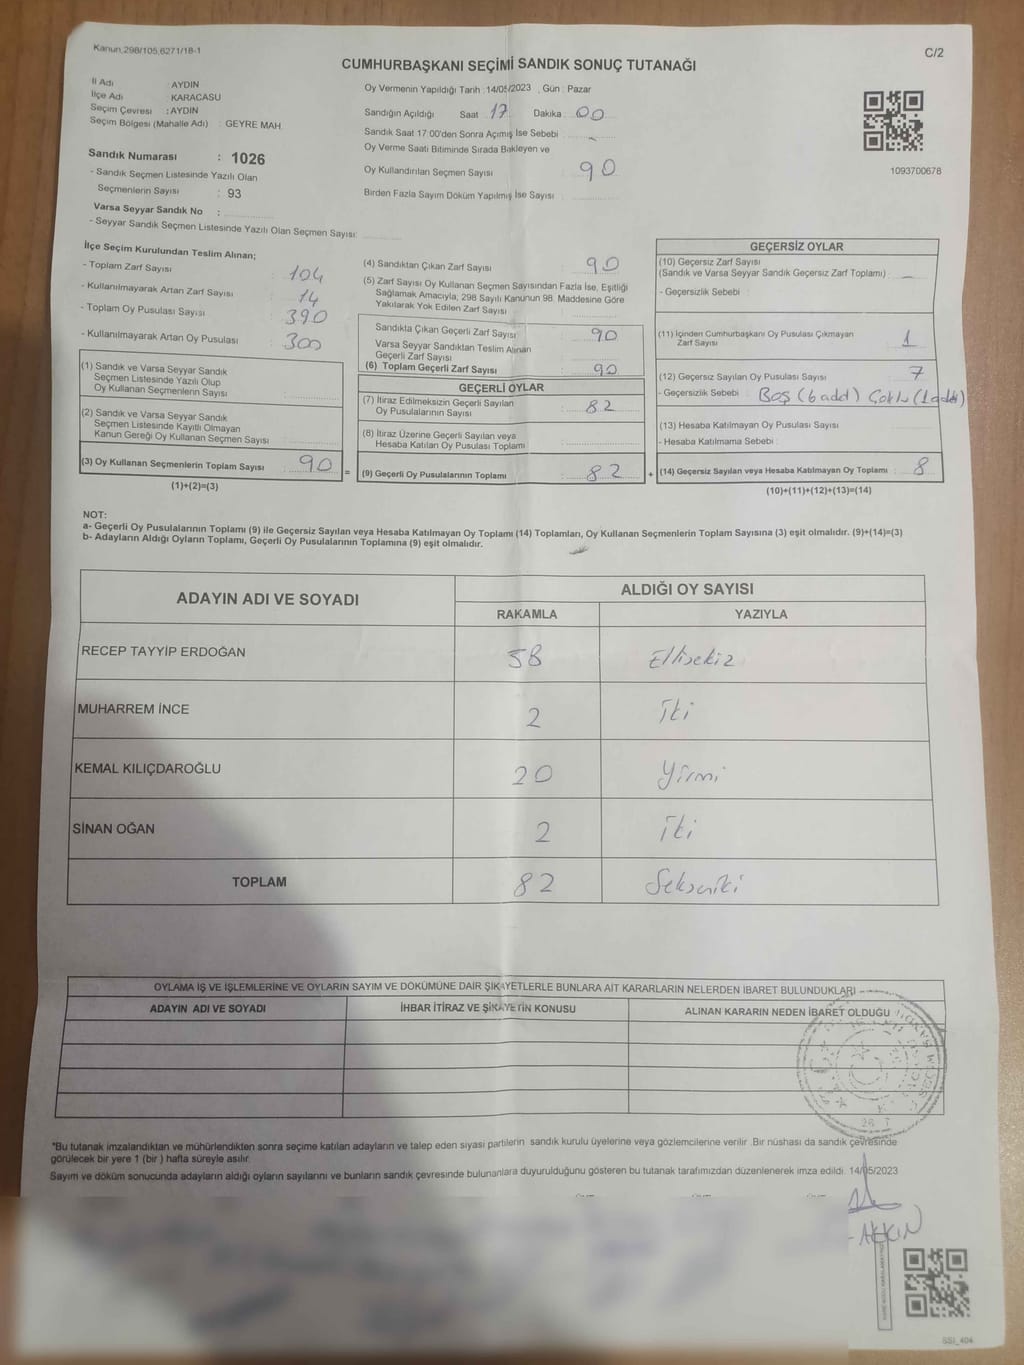 Kanun,298/105,6271/18-1
C/2
CUMHURBAŞKANI SEÇİMİ SANDIK SONUÇ TUTANAĞI
İl Adı : AYDIN
İlçe Adı : KARACASU
Seçim Çevresi : AYDIN
Seçim Bölgesi (Mahalle Adı) : GEYRE MAH.
Sandık Numarası : 1026
- Sandık Seçmen Listesinde Yazılı Olan
Seçmenlerin Sayısı : 93
Varsa Seyyar Sandık No :
- Seyyar Sandık Seçmen Listesinde Yazılı Olan Seçmen Sayısı:
Oy Vermenin Yapıldığı Tarih : 14/05/2023 , Gün : Pazar
Sandığın Açıldığı Saat 17 Dakika 00
Sandık Saat 17:00'den Sonra Açımış İse Sebebi
Oy Verme Saati Bitiminde Sırada Bekleyen ve
Oy Kullandırılan Seçmen Sayısı : 90
Birden Fazla Sayım Döküm Yapılmış İse Sayısı
1093700678
İlçe Seçim Kurulundan Teslim Alınan;
- Toplam Zarf Sayısı : 104
- Kullanılmayarak Artan Zarf Sayısı : 14
- Toplam Oy Pusulası Sayısı : 390
- Kullanılmayarak Artan Oy Pusulası : 300
(1) Sandık ve Varsa Seyyar Sandık
Seçmen Listesinde Yazılı Olup
Oy Kullanan Seçmenlerin Sayısı :
(2) Sandık ve Varsa Seyyar Sandık
Seçmen Listesinde Kayıtlı Olmayan
Kanun Gereği Oy Kullanan Seçmen Sayısı :
(3) Oy Kullanan Seçmenlerin Toplam Sayısı : 90
(1)+(2)=(3)
=
(4) Sandıktan Çıkan Zarf Sayısı : 90
(5) Zarf Sayısı Oy Kullanan Seçmen Sayısından Fazla İse, Eşitliği
Sağlamak Amacıyla, 298 Sayılı Kanunun 98. Maddesine Göre
Yakılarak Yok Edilen Zarf Sayısı :
Sandıkta Çıkan Geçerli Zarf Sayısı : 90
Varsa Seyyar Sandıktan Teslim Alınan
Geçerli Zarf Sayısı
(6) Toplam Geçerli Zarf Sayısı : 90
GEÇERLİ OYLAR
(7) İtiraz Edilmeksizin Geçerli Sayılan
Oy Pusulalarının Sayısı : 82
(8) İtiraz Üzerine Geçerli Sayılan veya
Hesaba Katılan Oy Pusulası Toplamı :
(9) Geçerli Oy Pusulalarının Toplamı : 82
+
GEÇERSİZ OYLAR
(10) Geçersiz Zarf Sayısı
(Sandık ve Varsa Seyyar Sandık Geçersiz Zarf Toplamı) : -
- Geçersizlik Sebebi :
(11) İçinden Cumhurbaşkanı Oy Pusulası Çıkmayan
Zarf Sayısı : 1
(12) Geçersiz Sayılan Oy Pusulası Sayısı : 7
- Geçersizlik Sebebi : Boş (6 add) Çoklu (1 add)
(13) Hesaba Katılmayan Oy Pusulası Sayısı :
- Hesaba Katılmama Sebebi :
(14) Geçersiz Sayılan veya Hesaba Katılmayan Oy Toplamı : 8
(10)+(11)+(12)+(13)=(14)
NOT:
a- Geçerli Oy Pusulalarının Toplamı (9) ile Geçersiz Sayılan veya Hesaba Katılmayan Oy Toplamı (14) Toplamları, Oy Kullanan Seçmenlerin Toplam Sayısına (3) eşit olmalıdır. (9)+(14)=(3)
b- Adayların Aldığı Oyların Toplamı, Geçerli Oy Pusulalarının Toplamına (9) eşit olmalıdır.
ADAYIN ADI VE SOYADI
ALDIĞI OY SAYISI
RAKAMLA YAZIYLA
RECEP TAYYİP ERDOĞAN 58 Ellisekiz
MUHARREM İNCE 2 İki
KEMAL KILIÇDAROĞLU 20 Yirmi
SİNAN OĞAN 2 İki
TOPLAM 82 Sekseniki
OYLAMA İŞ VE İŞLEMLERİNE VE OYLARIN SAYIM VE DÖKÜMÜNE DAİR ŞİKAYETLERLE BUNLARA AİT KARARLARIN NELERDEN İBARET BULUNDUKLARI
ADAYIN ADI VE SOYADI İHBAR İTİRAZ VE ŞİKAYETİN KONUSU ALINAN KARARIN NEDEN İBARET OLDUĞU
*Bu tutanak imzalandıktan ve mühürlendikten sonra seçime katılan adayların ve talep eden siyasi partilerin sandık kurulu üyelerine veya gözlemcilerine verilir .Bir nüshası da sandık çevresinde
görülecek bir yere 1 (bir ) hafta süreyle asılır.
Sayım ve döküm sonucunda adayların aldığı oyların sayılarını ve bunların sandık çevresinde bulunanlara duyurulduğunu gösteren bu tutanak tarafımızdan düzenlenerek imza edildi. 14/05/2023
AKKIN
SSI_404